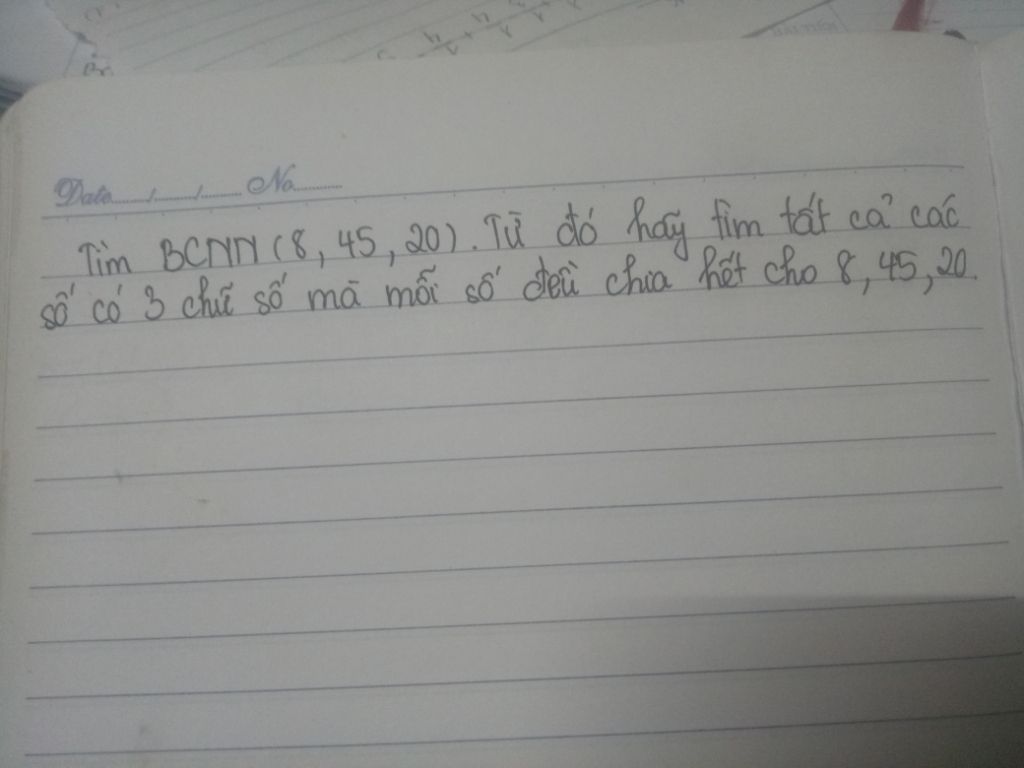 Date......./......./....... No..........
Tìm BCNN (8, 45, 20). Từ đó hãy tìm tất cả các
số có 3 chữ số mà mỗi số đều chia hết cho 8, 45, 20.